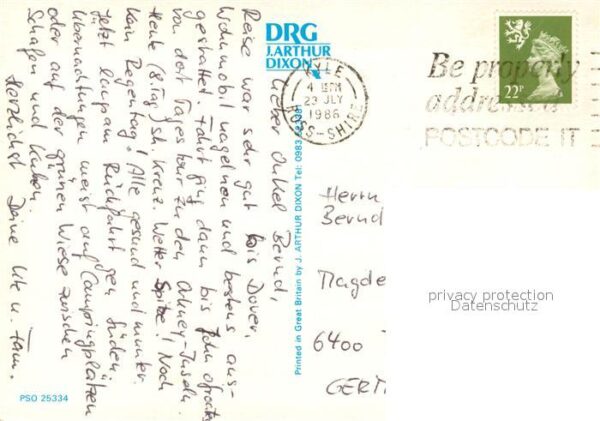 DRG
J. ARTHUR
DIXON
KYLE
4 PM
23 JLY
1986
ROSS-SHIRE
Be properly
addressed
POSTCODE IT
22P
Lieber Onkel Bernd,
Reise war sehr gut bis Dover,
Wohnmobil nagelneu und bestens aus-
gestattet. Fahrt ging dann bis John o'groats
von dort Tagestour zu den Orkney-Inseln.
Heute (8. Tag) sh. Kreuz Wetter Spitze! Noch
kein Regentag! Alle gesund und munter.
Jetzt langsam Rückfahrt gen Süden,
Übernachtungen meist auf Campingplätzen
oder auf der grünen Wiese zwischen
Schafen und Kühen.
Herzlichst Deine Ute u. Fam.
Printed in Great Britain by J. ARTHUR DIXON Tel: 0983
Herrn
Bernd
Magde
6400
GER
privacy protection
Datenschutz
PSO 25334